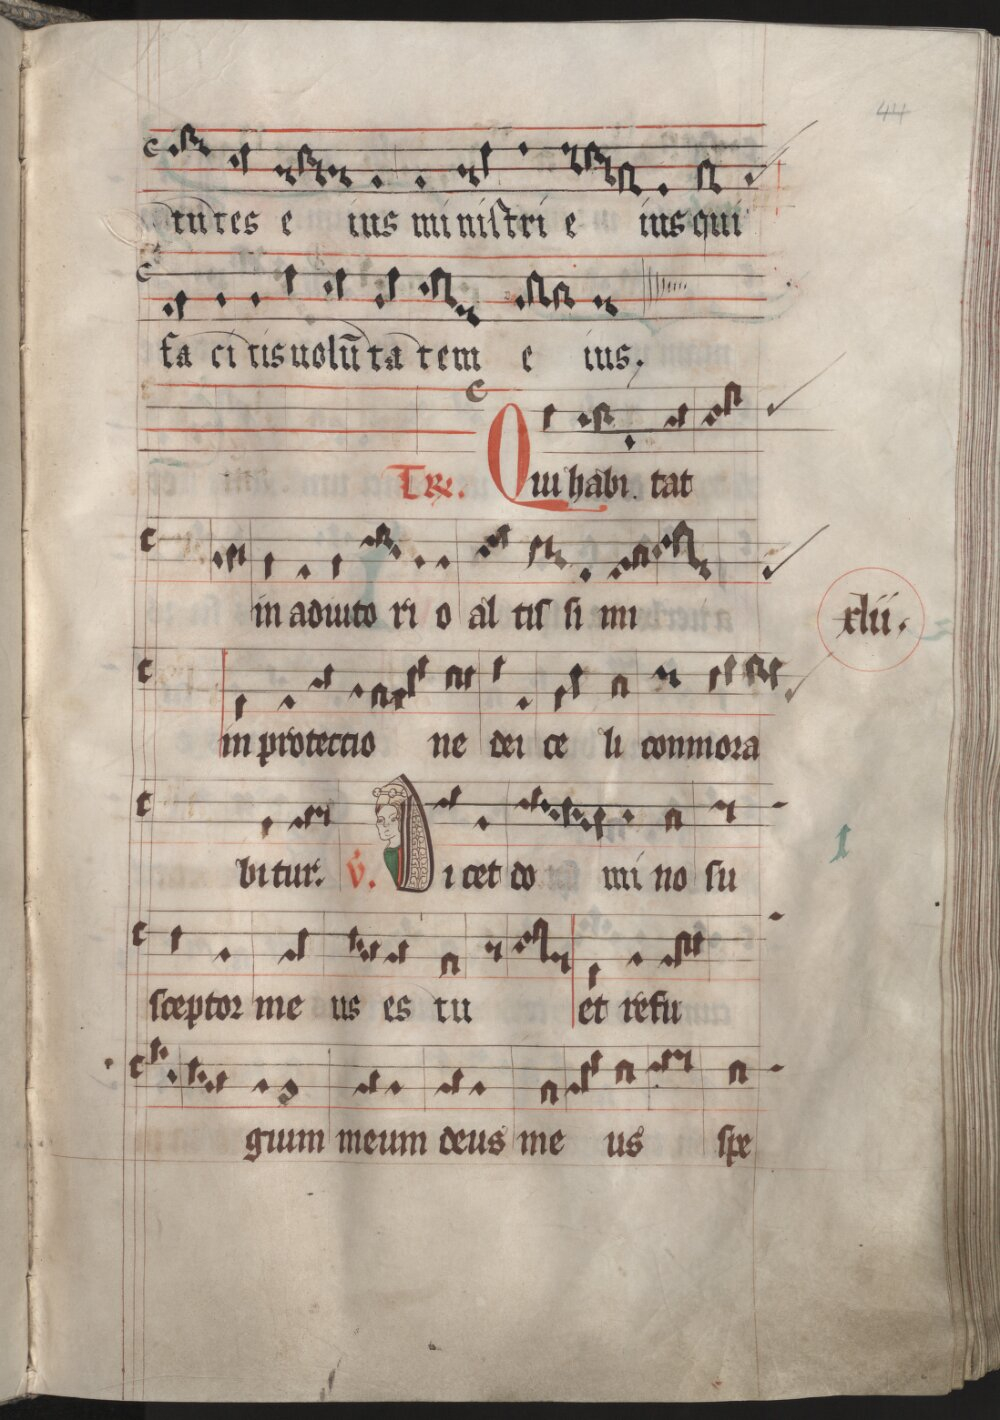 44
tutes e ius ministri e ius qui
fa citis uolū ta tem e ius.
Tr. Qui habi tat
in adiuto ri o al tis si mi
xlii.
in protectio ne dei ce li conmora
bitur. v. Dicet do mi no su
sceptor me us es tu et refu
gium meum deus me us spe